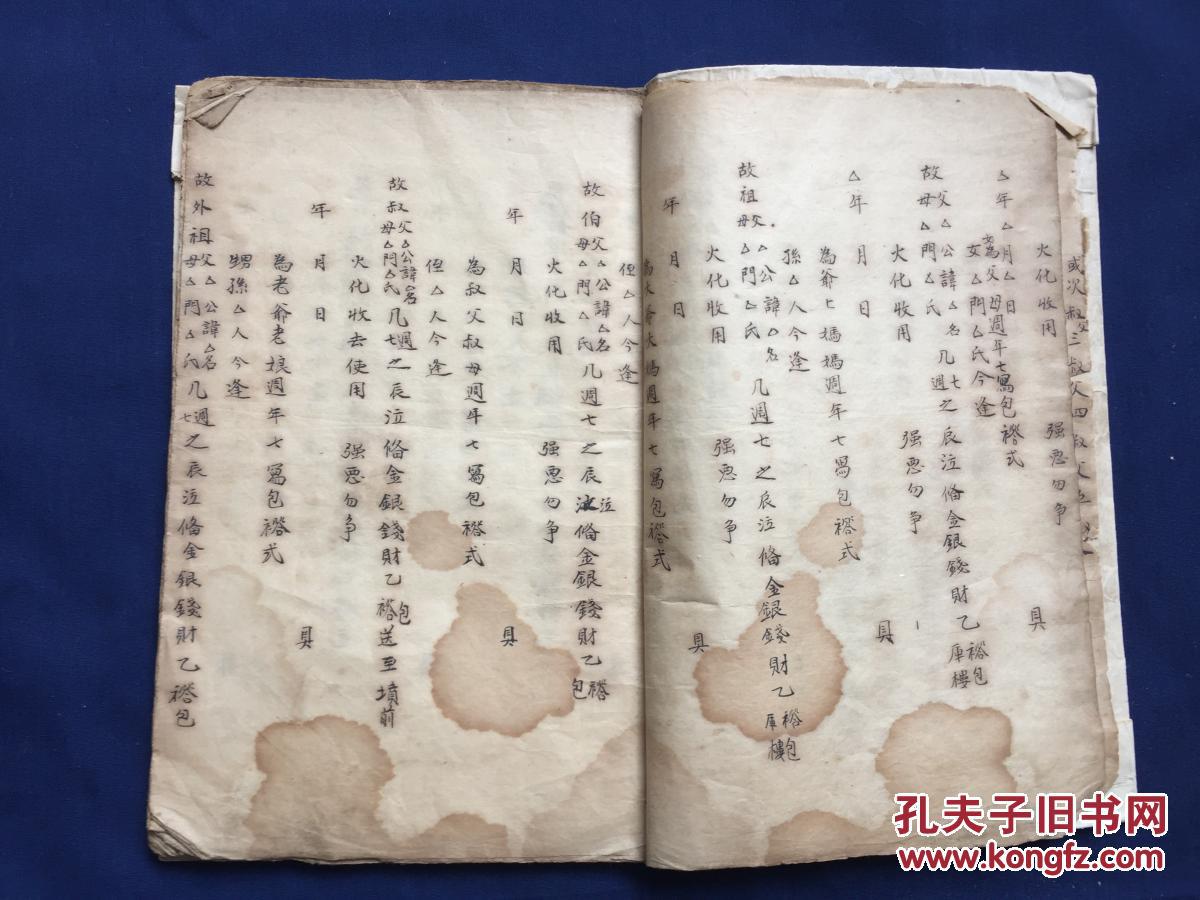 火化收用 强恶勿争 具
△年△月△日
女為父母週年七寫包褡式
女△門△氏今逢
故父△公諱△名母△門△氏几週七之辰泣俻金銀錢財乙褡包庫樓
火化收用 强恶勿争 具
△年 月 日
為爺〻媽媽週年七寫包褡式
孫△人今逢
故祖父△公諱△名母△門△氏几週七之辰泣俻金銀錢財乙褡包庫樓
火化收用 强恶勿争 具
年 月 日
為大爺大媽週年七寫包褡式
侄△人今逢
故伯父△公諱△名母△門△氏几週七之辰泣俻金銀錢財乙褡包
火化收用 强恶勿争 具
年 月 日
為叔父叔母週年七寫包褡式
侄△人今逢
故叔父△公諱△名母△門△氏几週七之辰泣俻金銀錢財乙包褡送至墳前
火化收去使用 强恶勿争 具
年 月 日
為老爺老娘週年七寫包褡式
甥孫△人今逢
故外祖父△公諱△名母△門△氏几週七之辰泣俻金銀錢財乙褡包
孔夫子旧书网
www.kongfz.com